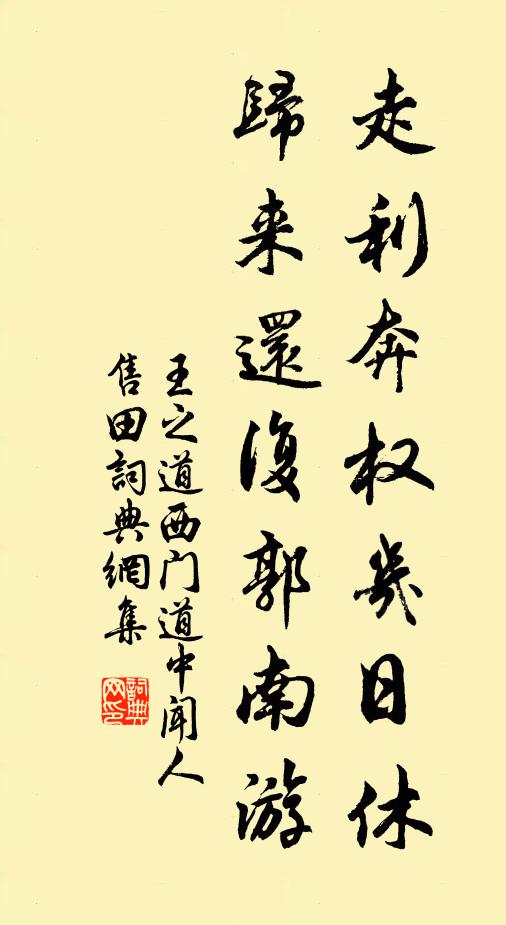 走利奔权几日休
歸来還復郭南游
王之道西门道中闻人
售田詞典網集
詞典网印